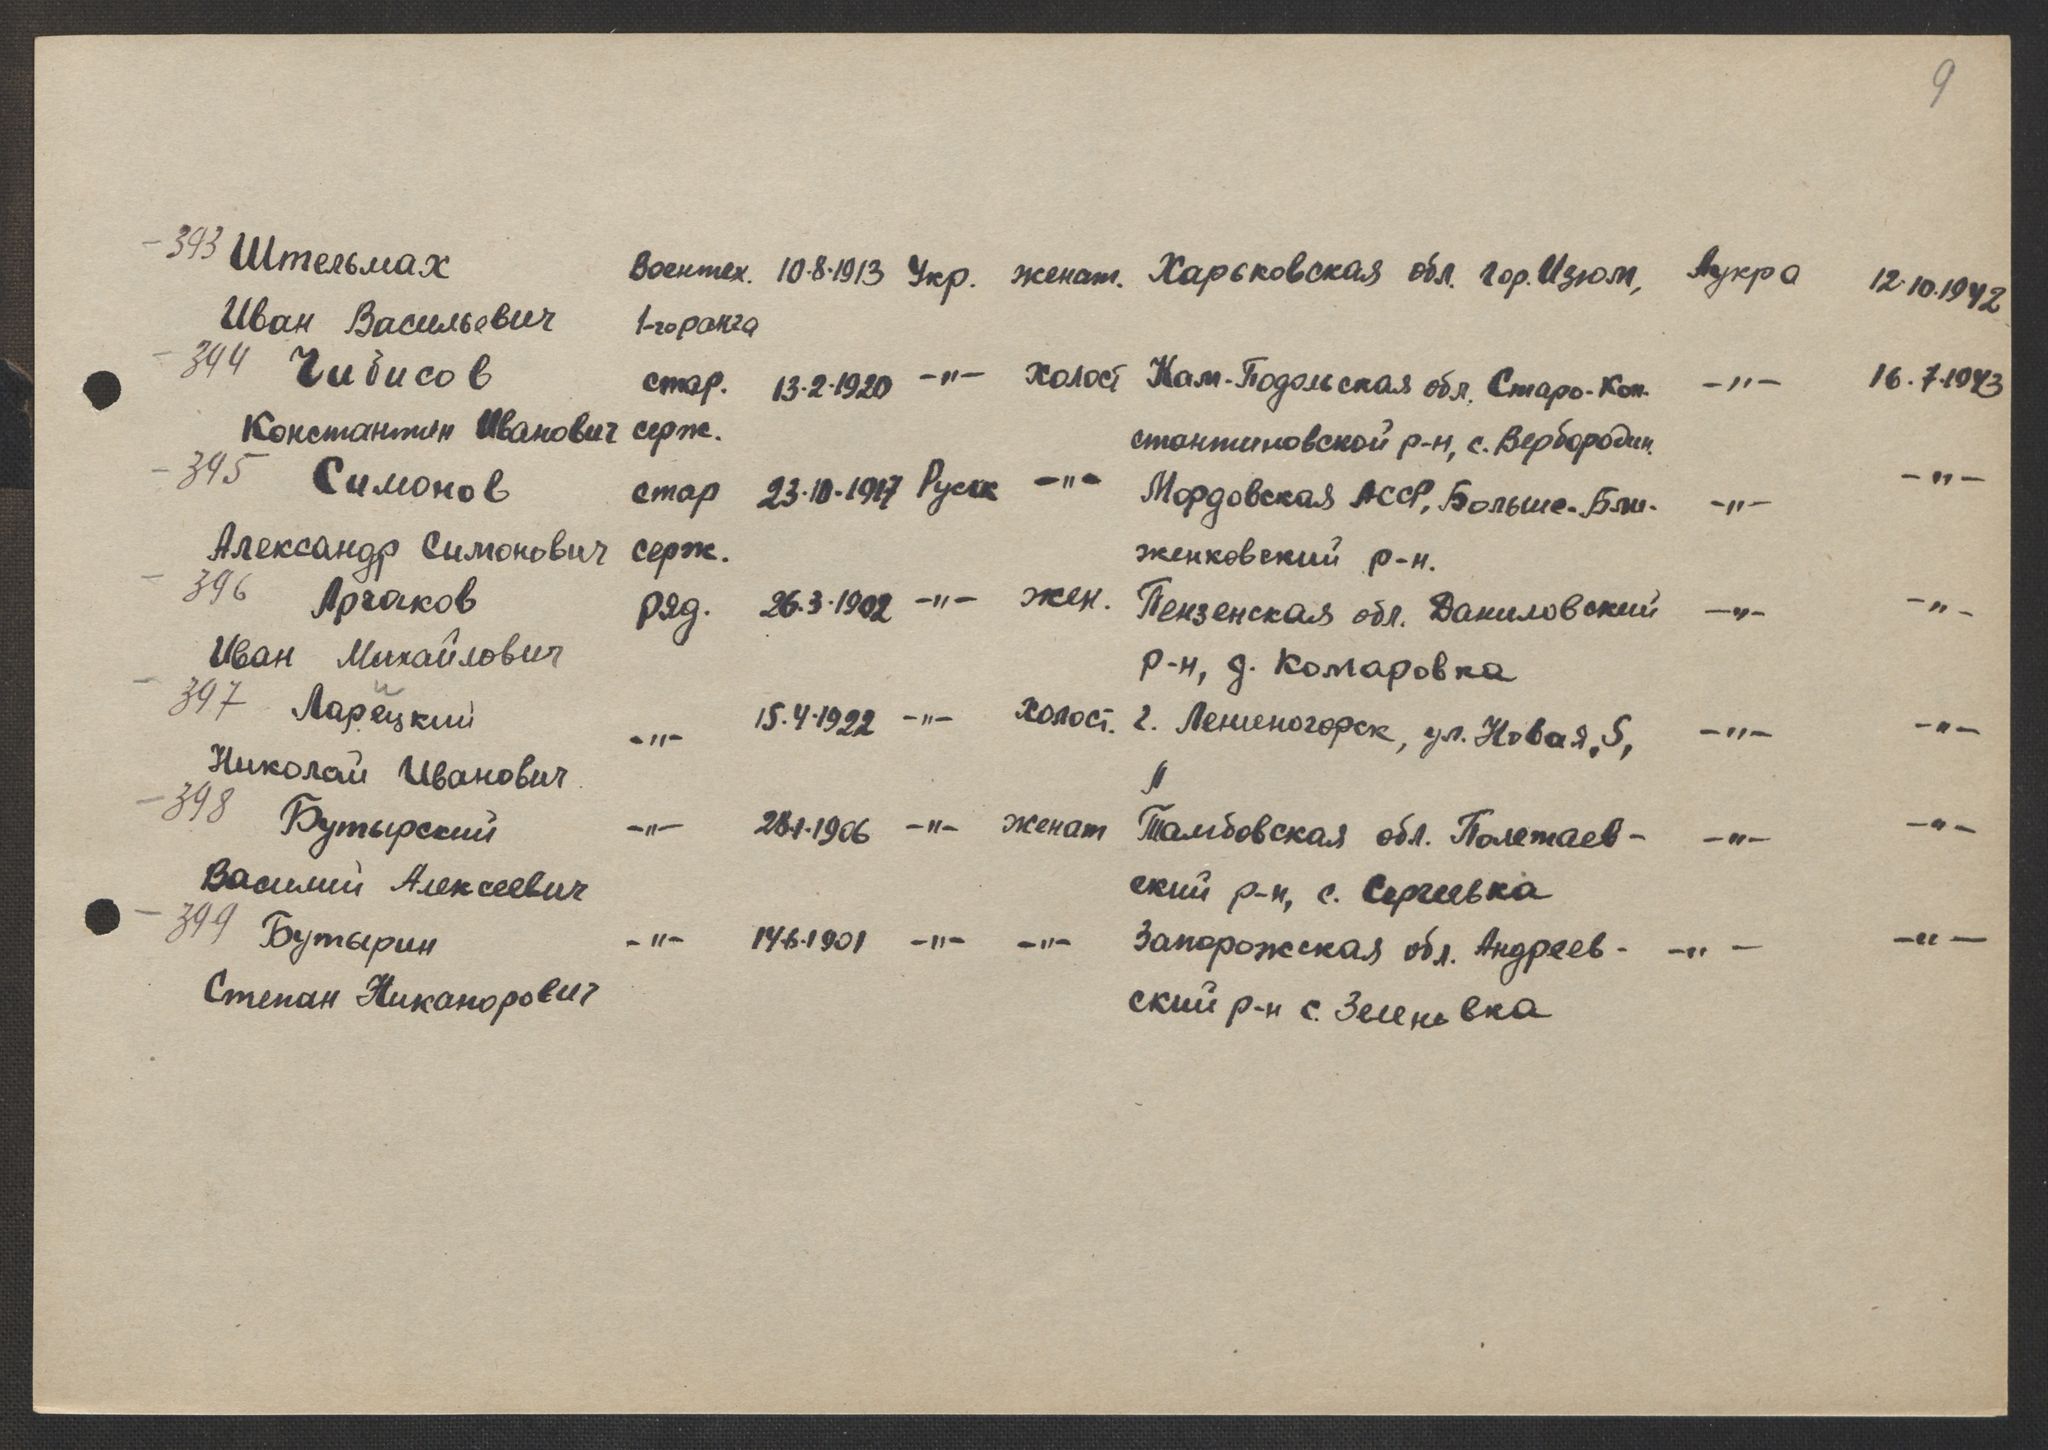 9
-393 Штельмах Воентех. 10.8.1913 Укр. женат. Харьковская обл. гор. Изюм, Аукра 12.10.1942
Иван Васильевич 1-го ранга
-394 Чибисов стар. 13.2.1920 -"- холост Кам-Подольская обл. Старо-Кон- -"- 16.7.1943
Константин Иванович серж. стантиновской р-н, с. Вербородин.
-395 Симонов стар 23.10.1917 Русск -"- Мордовская АССР, Больше- -"- -"-
Александр Симонович серж. женковский р-н.
-396 Арчаков ряд. 26.3.1902 -"- жен. Пензенская обл. Даниловский -"- -"-
Иван Михайлович р-н, д. Комаровка
-397 Ларецкий -"- 15.4.1922 -"- холост. г. Лениногорск, ул. Новая, 5, -"- -"-
Николай Иванович
-398 Бутырский -"- 28.1.1906 -"- женат Тамбовская обл. Полетаев- -"- -"-
Василий Алексеевич ский р-н, с. Сергиевка
-399 Бутырин -"- 14.6.1901 -"- -"- Запорожская обл. Андреев- -"- -"-
Степан Никанорович ский р-н с. Зеленовка